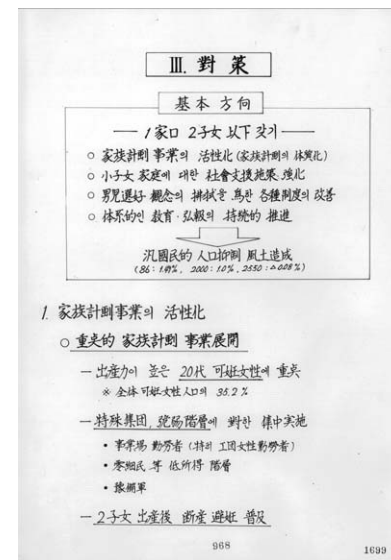 Ⅲ. 對策
基本 方向
— 1家口 2子女 以下 갖기 —
○ 家族計劃 事業의 活性化 (家族計劃의 体質化)
○ 小子女 家庭에 대한 社會支援施策 強化
○ 男兒選好 觀念의 拂拭을 爲한 各種制度의 改善
○ 体系的인 敎育·弘報의 持續的 推進
汎國民的 人口抑制 風土造成
1. 家族計劃事業의 活性化
○ 重点的 家族計劃 事業展開
— 出産力이 높은 20代 可妊女性에 重点
※ 全体 可妊女性人口의 35.2 %
— 特殊集団, 階層에 對한 集中実施
• 事業場 勤労者 (特히 工団女性勤労者)
• 零細民 等 低所得 階層
• 豫備軍
— 2子女 出産後 断産 避妊 普及
968
1699